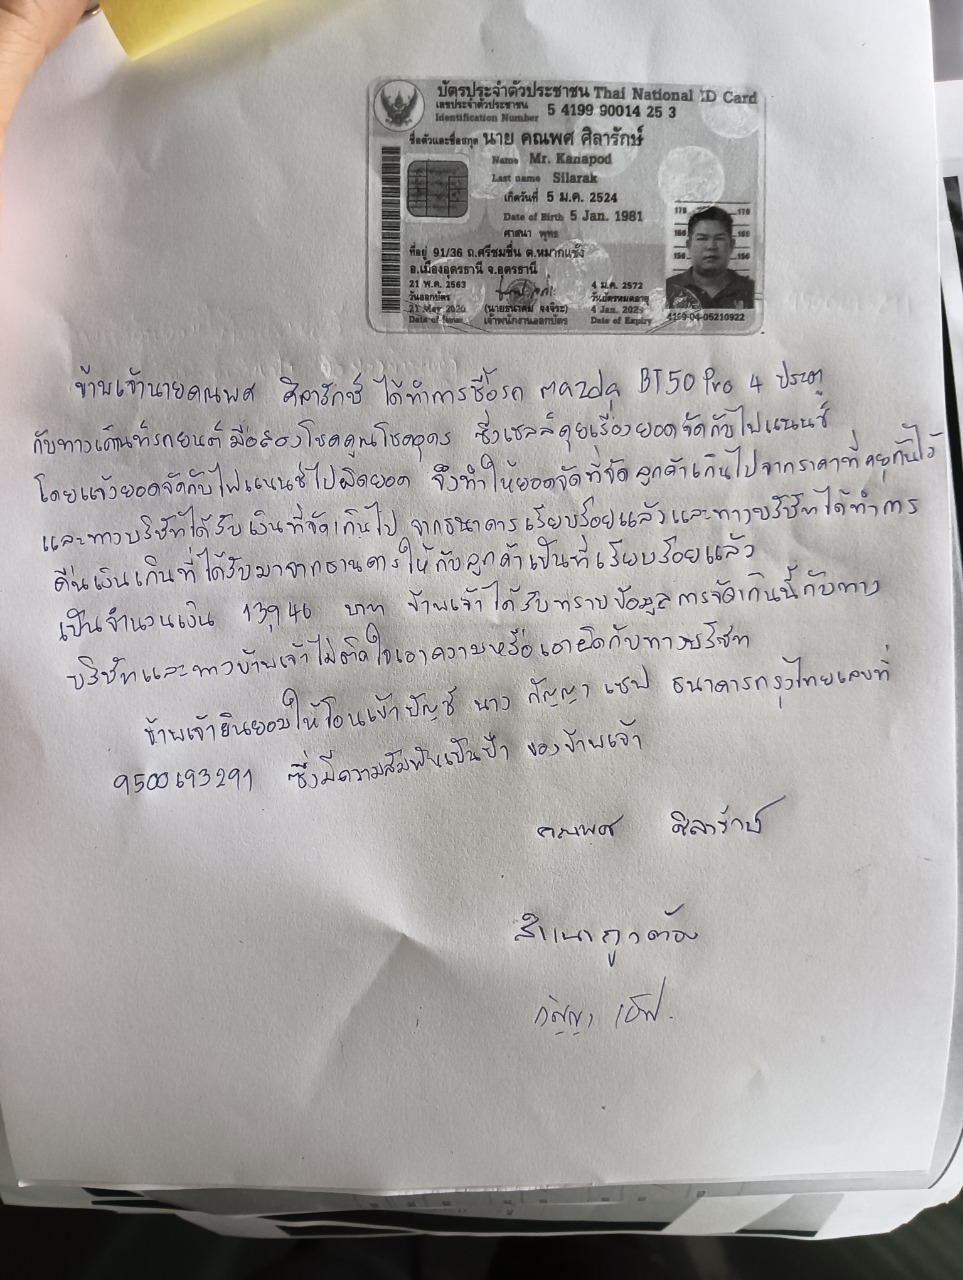 บัตรประจำตัวประชาชน Thai National ID Card
เลขประจำตัวประชาชน 5 4199 90014 25 3
Identification Number
ชื่อตัวและชื่อสกุล นาย คณพศ ศิลารักษ์
Name Mr. Kanapod
Last name Silarak
เกิดวันที่ 5 ม.ค. 2524
Date of Birth 5 Jan. 1981
ศาสนา พุทธ
ที่อยู่ 91/36 ถ.ศรีชมชื่น ต.หมากแข้ง
อ.เมืองอุดรธานี จ.อุดรธานี
21 พ.ค. 2563
วันออกบัตร
21 May 2020
Date of Issue
เจ้าพนักงานออกบัตร
4 ม.ค. 2572
วันบัตรหมดอายุ
4 Jan. 2029
Date of Expiry
4199-04-05210922
ข้าพเจ้านายคณพศ ศิลารักษ์ ได้ทำการซื้อรถ mazda BT50 Pro 4 ประตู
กับทางเต็นท์รถยนต์มือสองโชคคูณโชคอุดร ซึ่งเซลล์คุยเรื่องยอดจัดกับไฟแนนซ์
โดยแจ้งยอดจัดกับไฟแนนซ์ไปผิดยอด จึงทำให้ยอดจัดที่จัด ลูกค้าเกินไปจากราคาที่คุยกันไว้
และทางบริษัทได้รับเงินที่จัดเกินไป จากธนาคารเรียบร้อยแล้วและทางบริษัทได้ทำการ
คืนเงินเกินที่ได้รับมาจากธนาคารให้กับลูกค้าเป็นที่เรียบร้อยแล้ว
เป็นจำนวนเงิน 13,946 บาท ข้าพเจ้าได้รับทราบข้อมูลการจัดเกินนี้กับทาง
บริษัทและทางข้าพเจ้าไม่ติดใจเอาความหรือเอาผิดกับทางบริษัท
ข้าพเจ้ายินยอมให้โอนเข้าบัญชี นาง กัญญา เซฟ ธนาคารกรุงไทยเลขที่
9500693291 ซึ่งมีความสัมพันเป็นป้า ของข้าพเจ้า
คณพศ ศิลารักษ์
สำเนาถูกต้อง
กัญญา เซฟ